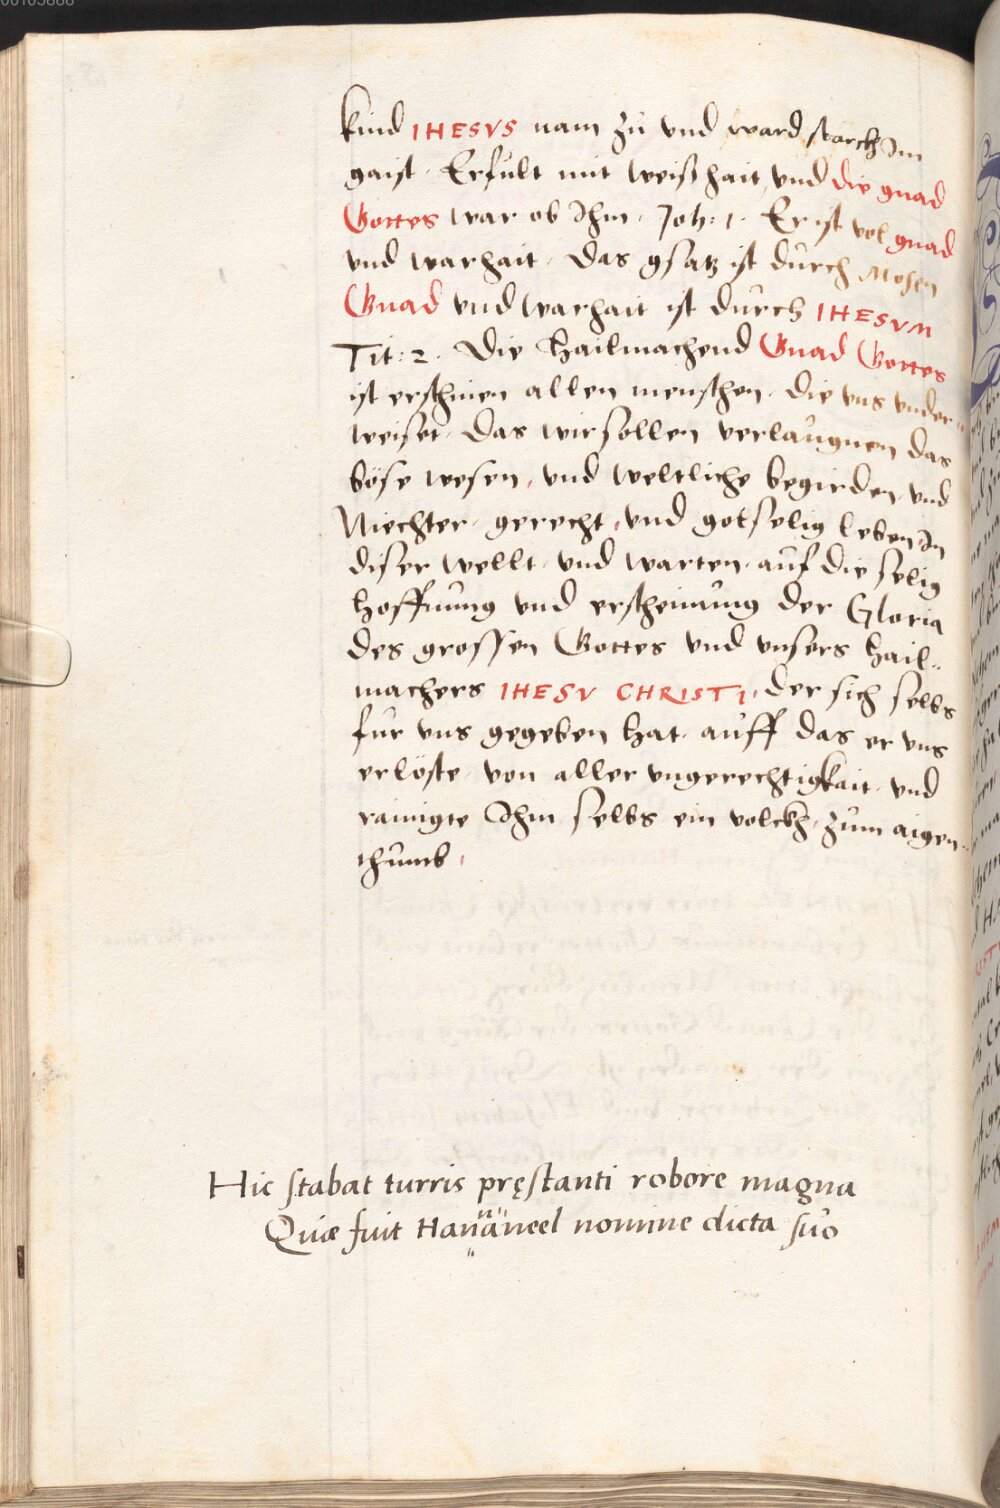 00105888
kind IHESVS nam zů vnd ward starckh Im
gaist. Erfult mit weißhait, vnd die gnad
Gottes war ob Ihm. Joh: 1. Er ist vol gnad
vnd warhait. Das gsatz ist durch Mosen
Gnad vnd warhait ist durch IHESVM
Tit: 2. Die hailmachend Gnad Gottes
ist erschinen allen menschen. die vns vnder-
weiset. Das wir sollen verlaugnen das
böse wesen, vnd weltliche begirden, vnd
Niechter, gerecht, vnd gotselig leben In
diser wellt, vnd warten, auf die selig
hoffnung vnd erscheinung der Gloria
des grossen Gottes vnd vnsers hail-
machers IHESV CHRISTI, der sich selbs
fur vns gegeben hat, auff das er vns
erlöste, von aller vngerechtigkait, vnd
rainigte Ihm selbs ein volckh, zum aigen-
thumb.
Hic stabat turris pręstanti robore magna
Quæ fuit Hananeel nomine dicta suo